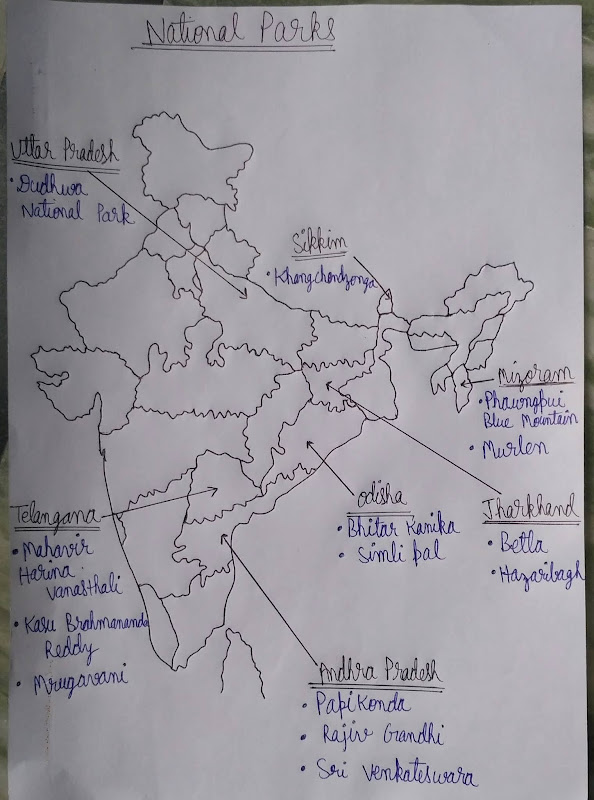 National Parks
Uttar Pradesh
• Dudhwa
National Park
Sikkim
• Khangchendzonga
Mizoram
• Phawngpui
Blue Mountain
• Murlen
Telangana
• Mahavir
Harina
Vanasthali
• Kasu Brahmananda
Reddy
• Mrugavani
Odisha
• Bhitar Kanika
• Simli pal
Jharkhand
• Betla
• Hazaribagh
Andhra Pradesh
• Papikonda
• Rajiv Gandhi
• Sri Venkateswara